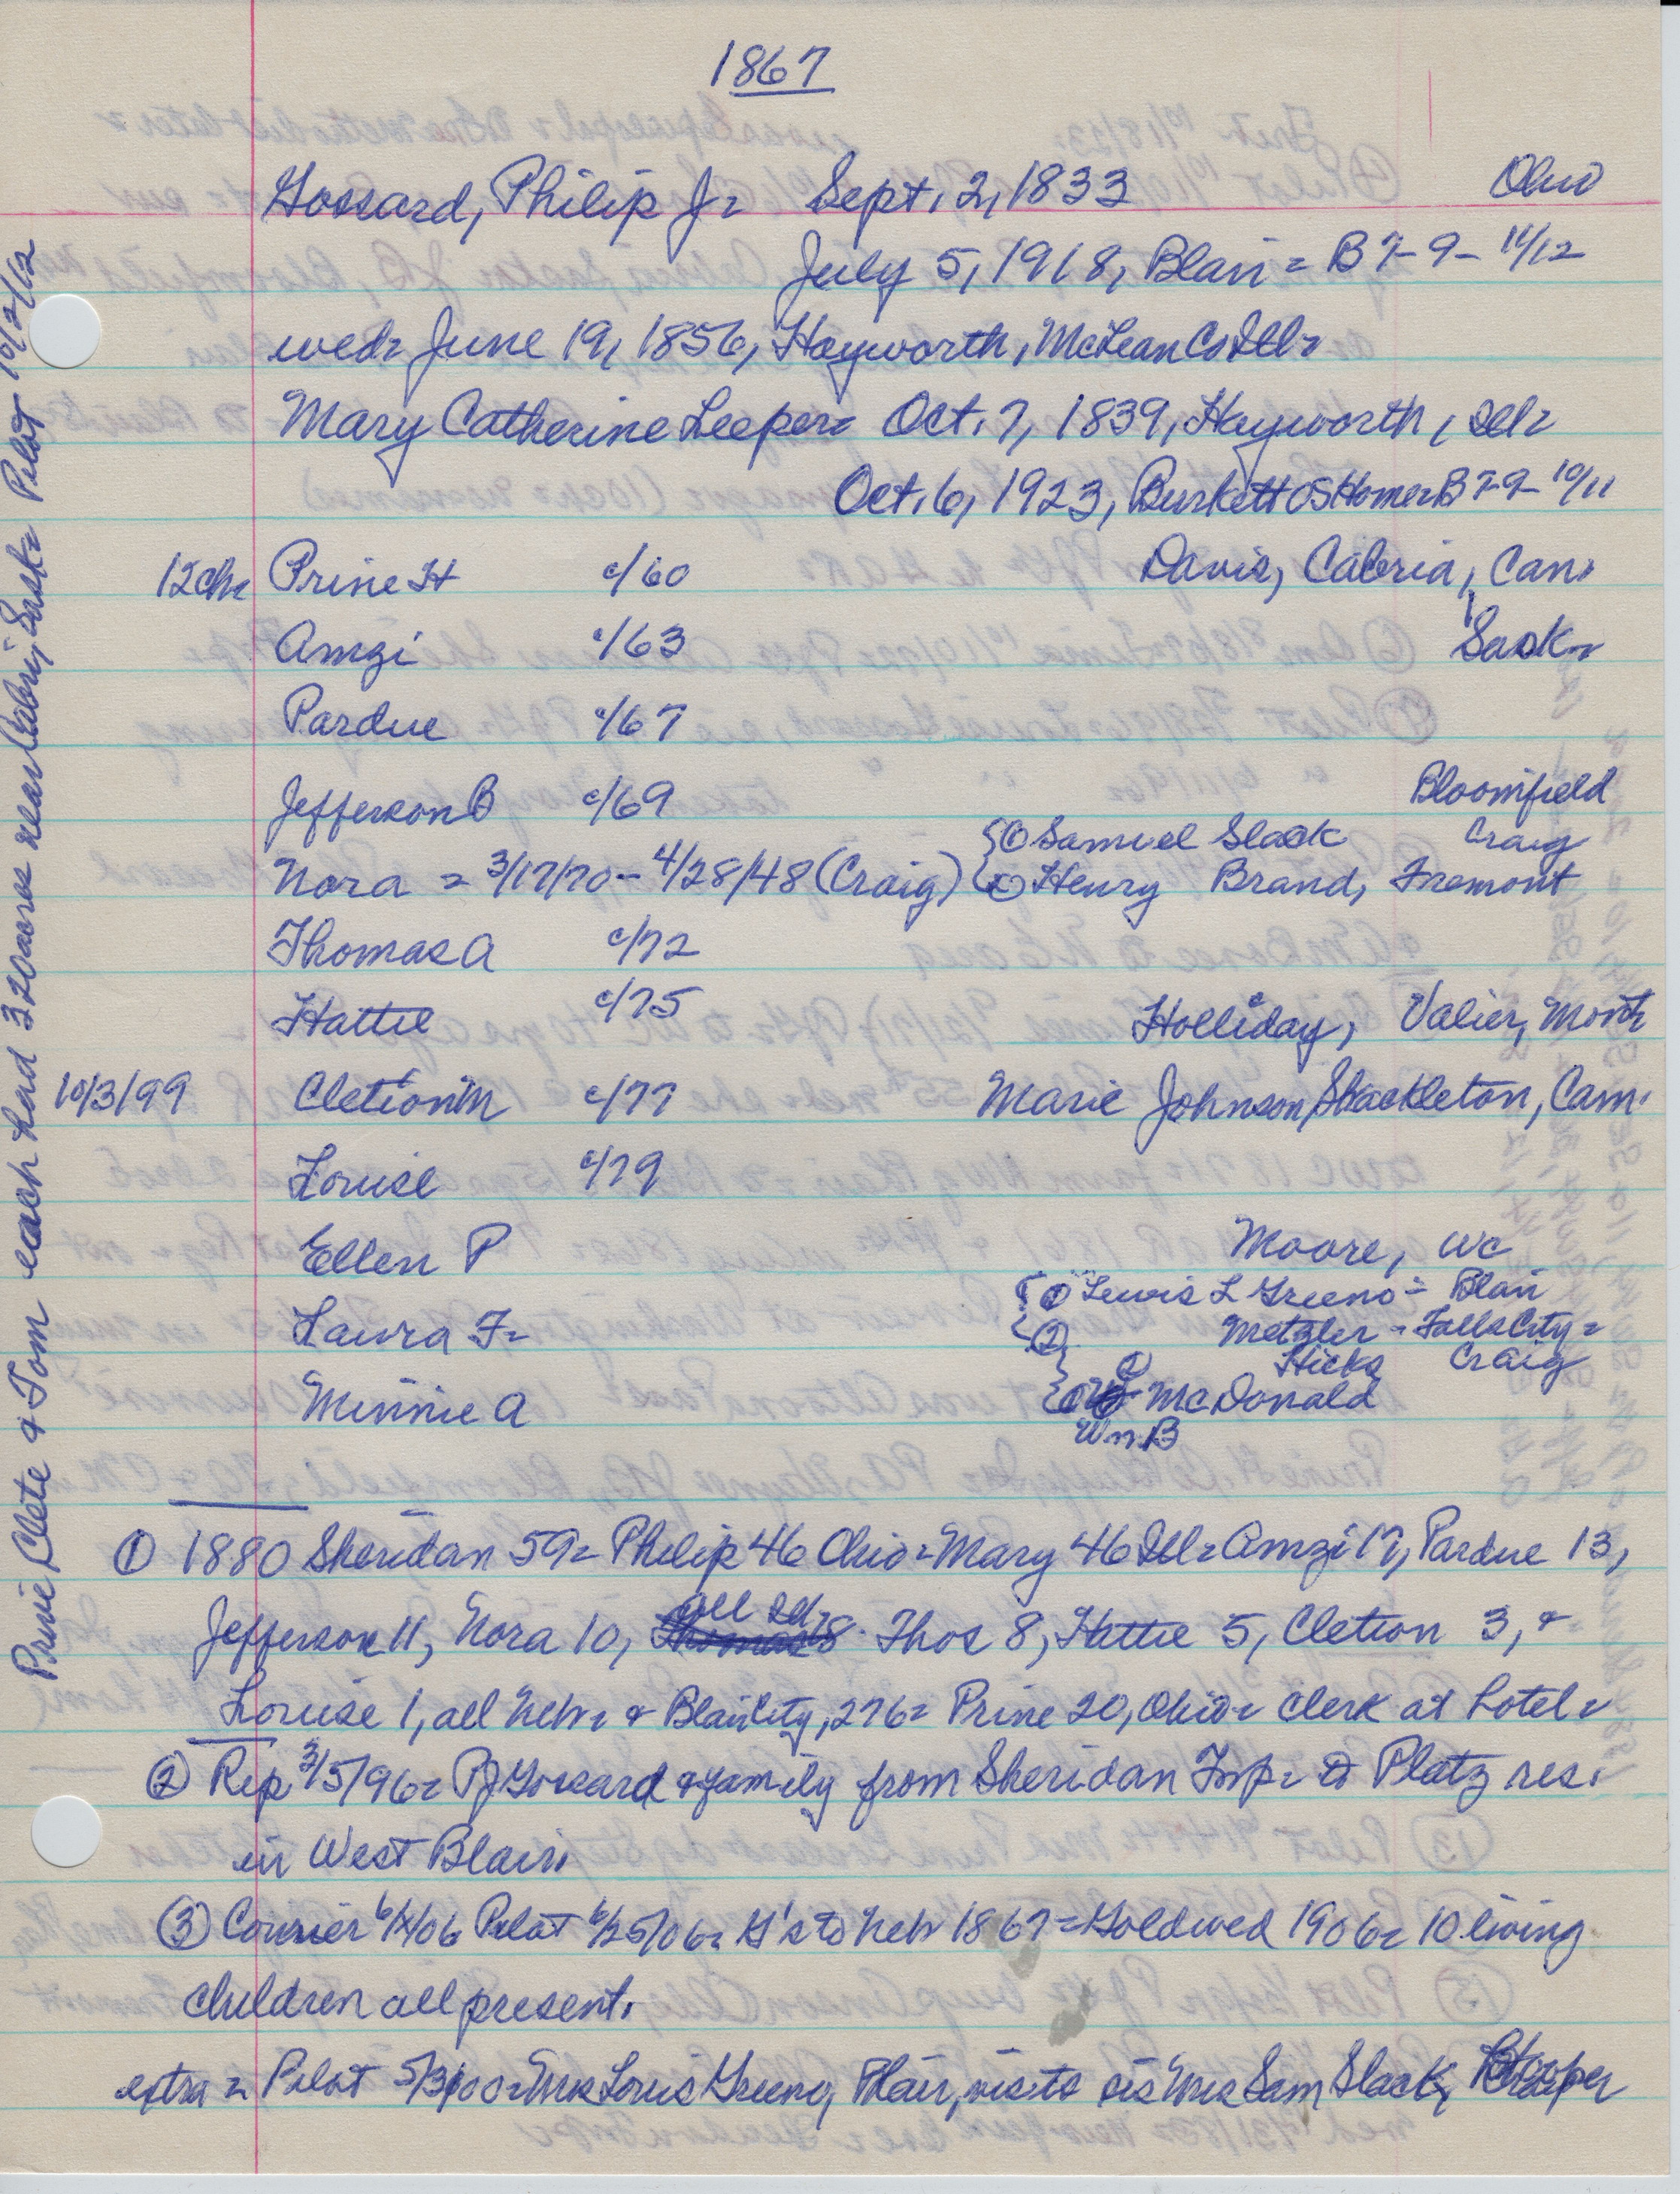 1867
Gossard, Philip Jr= Sept. 2, 1833 Ohio
July 5, 1918, Blair= B 7-9- 11/12
wed= June 19, 1856, Hayworth, McLean Co Ill=
Mary Catherine Leeper= Oct. 7, 1839, Hayworth, Ill=
Oct. 6, 1923, Burkett OS Home= B 7-9- 10/11
12ch= Prine H c/60 Davis, Cabria, Can.
Amzi c/63 Sask=
Pardue c/67
Jefferson B c/69 Bloomfield
① Samuel Slack Craig
Nora = 3/17/70 - 4/28/48 (Craig) ② Henry Brand, Fremont
Thomas A c/72
Hattie c/75 Holliday, Valier, Mont
10/3/99 Cletion M c/77 Marie Johnson, Shackleton, Can.
Louise c/79
Ellen P Moore, WC
① Lewis L Greeno = Blair
Laura F= ② Metzler - Falls City=
② Hicks Craig
Minnie A ① McDonald
Wm B
① 1880 Sheridan 59= Philip 46 Ohio= Mary 46 Ill= Amzi 17, Pardue 13,
all Ill=
Jefferson 11, Nora 10, Thos 8, Hattie 5, Cletion 3, &
Louise 1, all Neb= & Blair City, 276= Prine 20, Ohio= clerk at hotel=
② Rep 3/5/96= PJ Gossard & family from Sheridan Twp= to Platz res.
in West Blair.
③ Courier 6/ /06 Pilot 6/25/06= G's to Neb 1867= Gold wed 1906= 10 living
children all present.
extra = Pilot 5/3/00= Mrs Louis Greeno, Blair, vis to sis Mrs Sam Slack, Hooper
Prine, Clete & Tom each had 320 acres near Cabri, Sask= Pilot 10/2/12